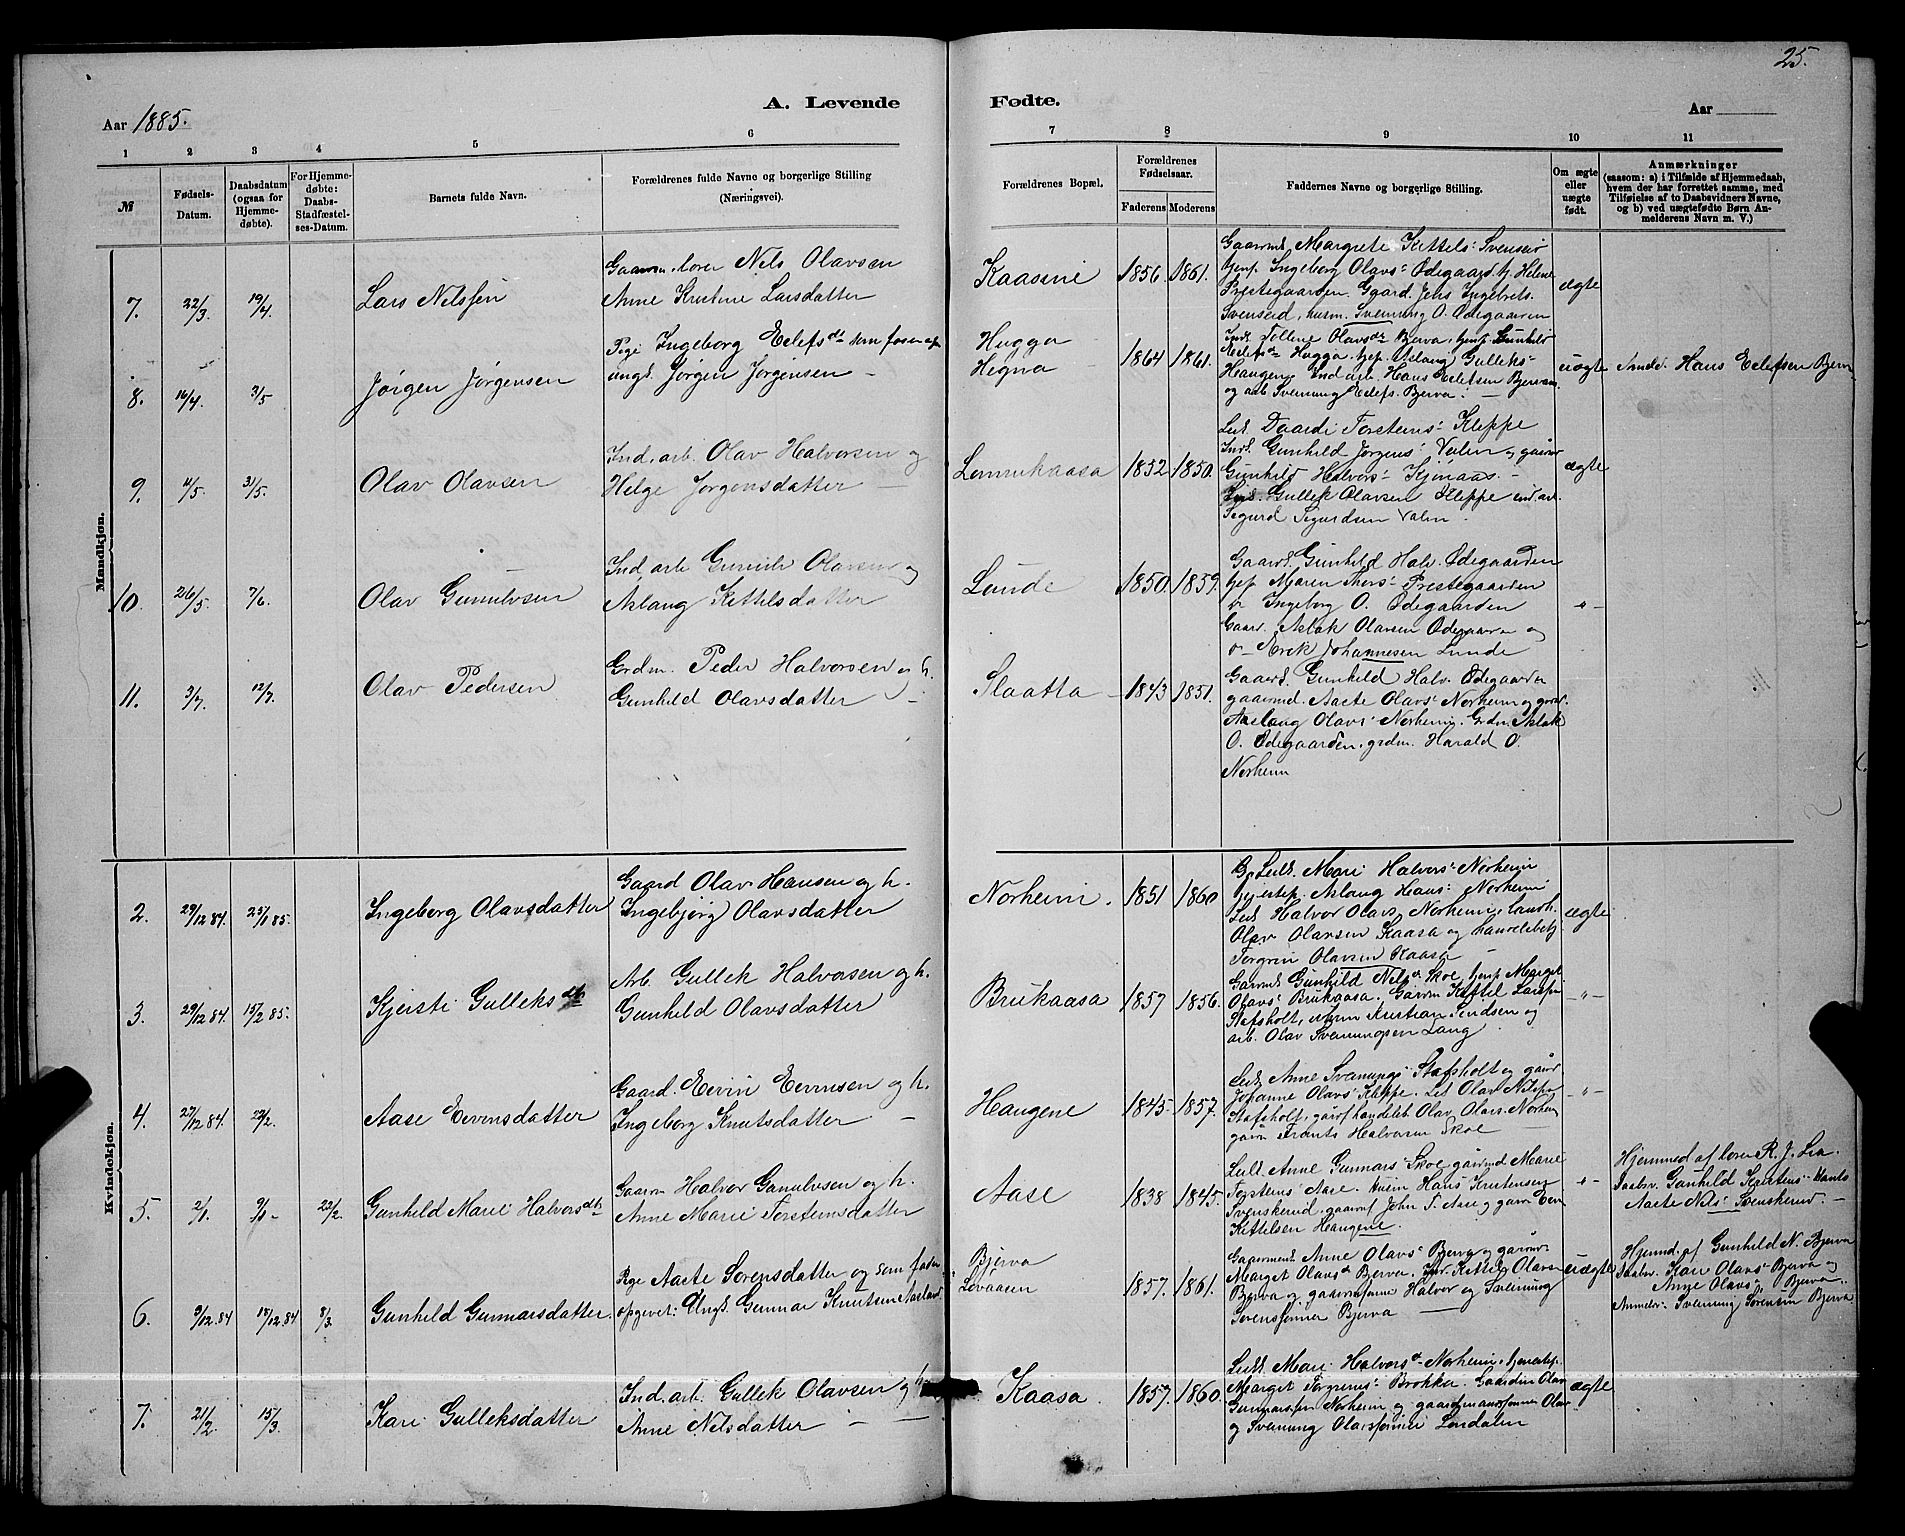 25.
A. Levende Fødte.
Aar 1885.
Aar
1 2 3 4 5 6 7 8 9 10 11
№
Fødsels-Datum.
Daabsdatum (ogsaa for Hjemmedøbte).
For Hjemmedøbte: Daabs-Stadfæstelses-Datum.
Barnets fulde Navn.
Forældrenes fulde Navne og borgerlige Stilling (Næringsvei).
Forældrenes Bopæl.
Forældrenes Fødselsaar.
Faderens Moderens
Faddernes Navne og borgerlige Stilling.
Om ægte eller uægte født.
Anmærkninger
(saasom: a) i Tilfælde af Hjemmedaab, hvem der har forrettet samme, med Tilføielse af to Daabsvidners Navne, og b) ved uægtefødte Børn Anmelderens Navn m. V.)
Mandkjøn.
7. 22/3 19/4 Lars Nilssen
Nils Olavsen
Anne Kristine Larsdatter
Kaasene 1856. 1861.
Gaarmd. Margrete Kittels: Svenseid
Ingeborg Olavs: Ødegaard. Helene
Prestegaarden. Jens Ingebrets.
Svenseid, husm. Svenung O. Ødegaarden
ægte
8. 16/4. 3/5 Jørgen Jørgensen
Pige Ingeborg Eelefsdr som
ungk. Jørgen Jørgensen –
Hugga
Hegna 1864 1861.
Olavsdr Bjerva. Gunhild
Eelefsdr Hugga. Aslaug Gulleks:
Haugen. Ind. arb. Hans Eelefsen Bjervam
og arb. Svenung Eelefs. Bjerva. –
uægte Anmdr. Hans Eelefsen Bjerva
9. 4/5. 31/5. Olav Olavsen
Ind. arb. Olav Halvorsen og
Helge Jørgensdatter –
Lonnekaasa 1852 1850.
Daardi Torsteins: Kleppe
Inds. Gunhild Jørgens: Valen og
Gunhild Halvors: Kjønaas. –
Gullek Olavsen Kleppe ind. arb.
Sigurd Sigurdsen Valen.
ægte
10. 26/5. 7/6. Olav Gunulvsen
Ind. arb. Gunulv Olavsen og
Aslaug Kittilsdatter
Lunde 1850. 1839.
Gaard. Gunhild Halv. Ødegaarden
Maren Thors: Prestegaarden
Ingeborg O. Ødegaarden
Gaard. Aslak Olavsen Ødegaarden og
Johannesen Lunde
–"–
11. 3/7. 12/7. Olav Pedersen
Grdm. Peder Halvorsen og h.
Gunhild Olavsdatter –
Slaatta – 1843 1851.
Gaard. Gunhild Halv. Ødegaarden
gaarmd. Aaste Olavs: Norheim og
Aaslaug Olavs: Norheim. Grdm. Aslak
O. Ødegaarden. grdm. Harald O.
Norheim
Kvindekjøn.
2. 29/12 84. 25/1 85. Ingeborg Olavsdatter
Gaard Olav Hansen og h.
Ingebjørg Olavsdatter
Norheim. 1851 1860
Mari Halvors: Norheim
Aslaug Hans: Norheim
Halvor Olavs. Norheim.
Olav Olavsen Kaasa og handelsbetj.
Torgrim Olavsen Kaasa –
ægte
3. 29/12 84. 15/2 85. Kjersti Gulleksdtr
Arb. Gullek Halvorsen og h.
Gunhild Olavsdatter
Brukaasa 1857 1856.
Gunhild Nilsdr Skoe, Marget
Olavs: Brukaasa. Gaarm. Kittil Larssen
Stafsholt, Kristian og
arb. Olav Svenungsen Lang.
–"–
4. 27/12 84. 22/2. Aase Eevensdatter
Gaard. Eevin Eevensen og h.
Ingeborg Knutsdatter –
Haugene 1845. 1857.
Anne Svenungs: Stafsholt og
Johanne Olavs: Kleppe. Olav Nilssen
Stafsholt, handelsb. Olav Olavs. Norheim
Frants Halvorsen Skoe
–"–
5. 2/1. 22/2. Gunhild Marie Halvorsdtr
Gaarm Halvor Gunulvsen og h.
Anne Marie Torsteinsdatter
Aase 1838 1845.
Anne Gunnars: Skoe gaarmd Marie
Torsteins: Aase. Husm Hans Knutsen
Svenskerud. John T. Aase og
Kittilsen Haugene.
–"–
Hjemmed. af R. J. Lia
Daabsv. Gunhild
Aaste Nils: Svenskerud. –
6. 9/12 84 18/12 84 8/3. Gunhild Gunnarsdatter.
Pige Aaste Sørensdatter og som
opgivet: Ungk. Gunnar Knutsen
Bjerva
Løvaasen 1857. 1861.
Anne Olavs: Bjerva og
Marget Olavsdr Bjerva. Ind. Kittil Olavs
Bjerva og Halvor og Svenung
Sørenssønner Bjerva
uægte
Hjemd. af Gunhild N. Bjerva
Daabsv. Kari Olavs: Bjerva og
Anne Olavs: Bjerva.
Anmelder: Svenung Sørensen Bjerva
7. 21/2 15/3. Kari Gulleksdatter
Ind. arb. Gullek Olavsen og h.
Anne Nilsdatter –
Kaasa. 1857. 1860.
Mari Halvorsdr Norheim,
Marget Torgrims: Brokka. Olav
Gunnarssen Norheim og gaardmandssønner Olav
og Svenung Olavssønner Lindalen
ægte